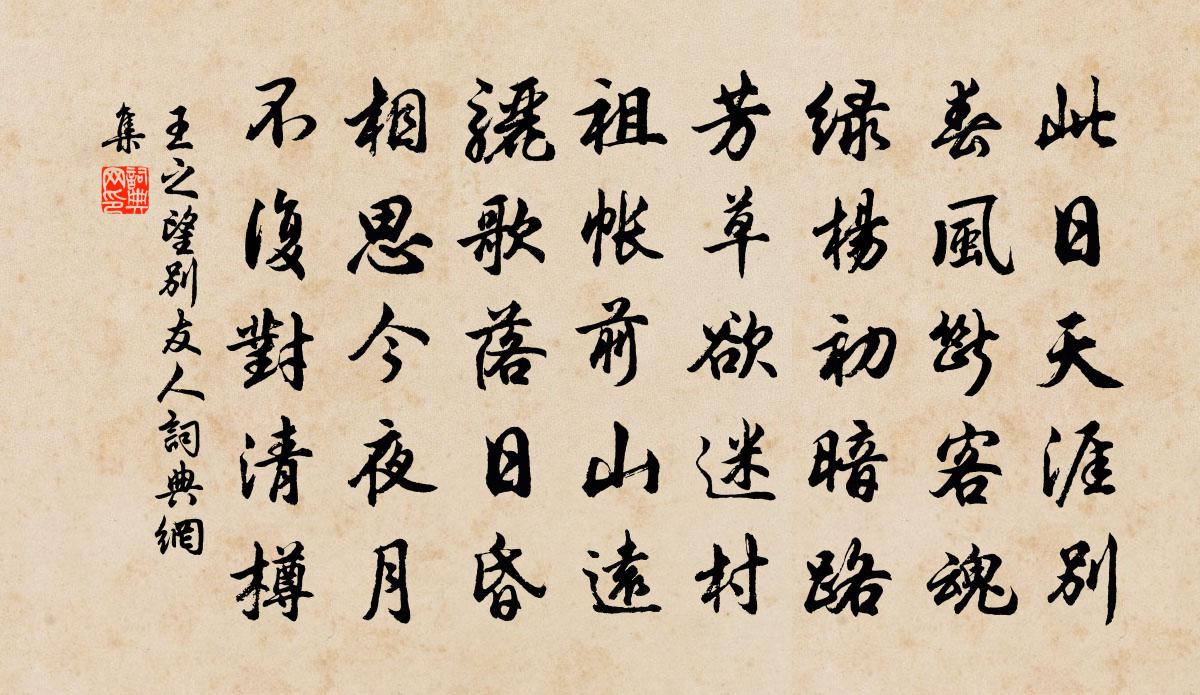 此日天涯別
春風斷客魂
緑楊初暗路
芳草欲迷村
祖帳前山遠
驪歌落日昏
相思今夜月
不復對清樽
王之望別友人詞典網
集
詞典
网印